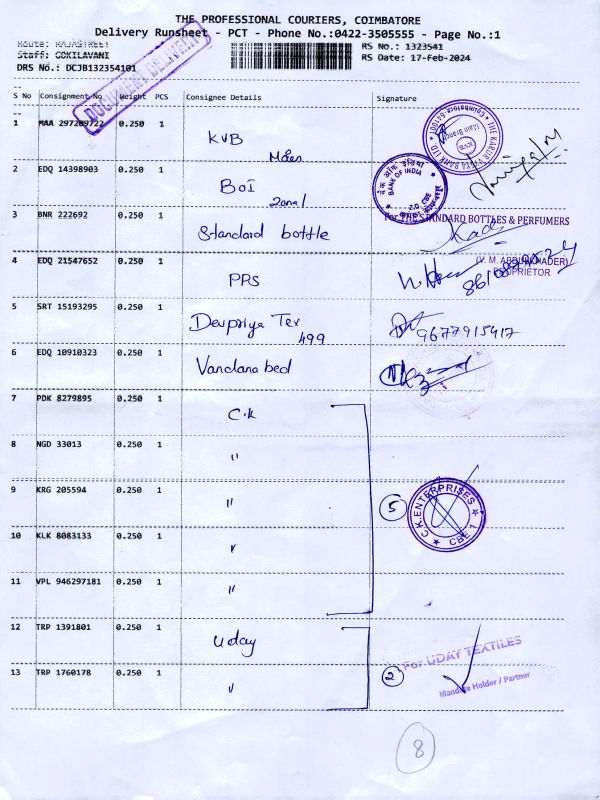 THE PROFESSIONAL COURIERS, COIMBATORE
Delivery Runsheet - PCT - Phone No.:0422-3505555 - Page No.:1
Route: RAJASTREET
RS No.: 1323541
Staff: GOKILAVANI
RS Date: 17-Feb-2024
DRS No.: DCJB132354101
DOCUMENT DELIVERY
S No Consignment No Weight PCS Consignee Details Signature
1 MAA 297209722 0.250 1 KVB Main
THE KARUR VYSYA BANK LTD. Coimbatore-641001 KVB Main Branch
2 EDQ 14398903 0.250 1 BOI Zonal
BANK OF INDIA Z.O. CBE
3 BNR 222692 0.250 1 Standard bottle
For THE STANDARD BOTTLES & PERFUMERS
Kadi
(V. M. ABDUL KADER)
PROPRIETOR
4 EDQ 21547652 0.250 1 PPS
5 SRT 15193295 0.250 1 Devpriya Tex 499
9677915417
6 EDQ 10910323 0.250 1 Vandana bed
7 PDK 8279895 0.250 1 C.K
8 NGD 33013 0.250 1 "
9 KRG 205594 0.250 1 "
5 C.K. ENTERPRISES CBE 1
10 KLK 8083133 0.250 1 "
11 VPL 946297181 0.250 1 "
12 TRP 1391801 0.250 1 Uday
For UDAY TEXTILES
13 TRP 1760178 0.250 1 "
2 Mandate Holder / Partner
8